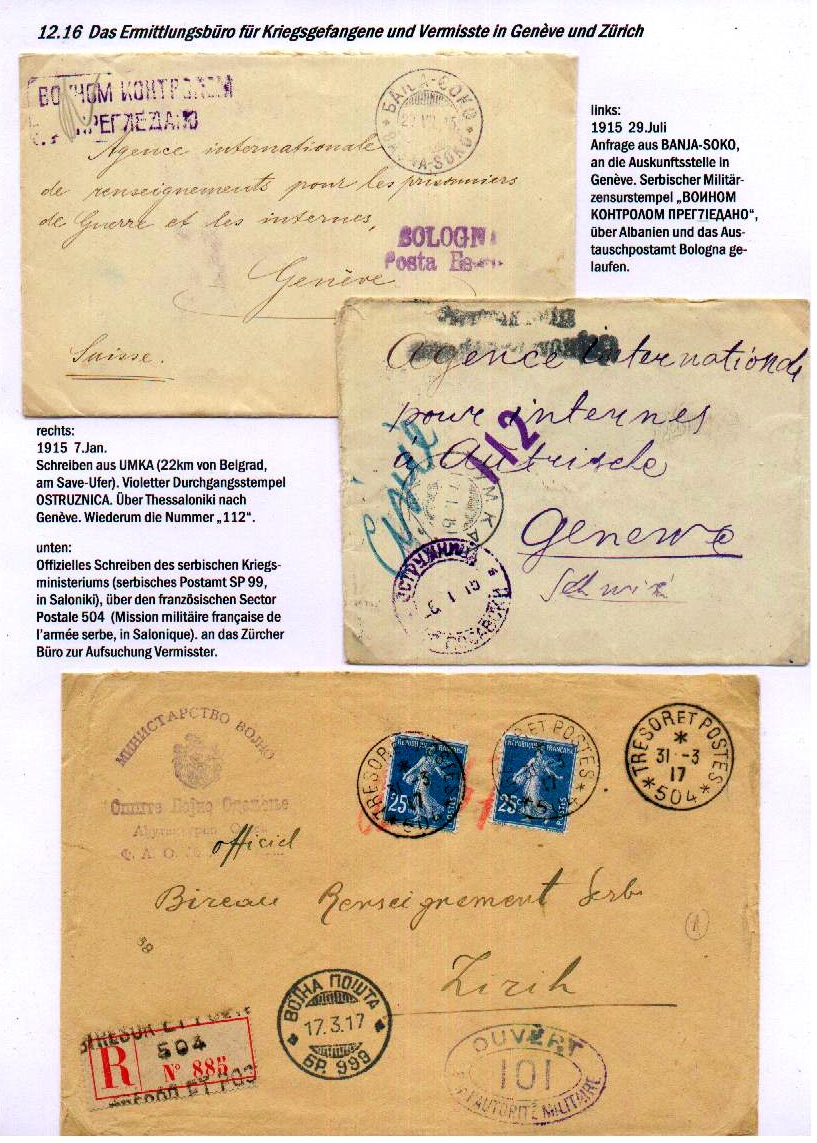 12.16 Das Ermittlungsbüro für Kriegsgefangene und Vermisste in Genève und Zürich
ВОЈНОМ КОНТРОЛОМ
ПРЕГЛЕДАНО
БАЊА-СОКО
Agence internationale
de renseignements pour les prisonniers
de Guerre et les internes,
BOLOGNA
Posta
Genève
Suisse.
links:
1915 29.Juli
Anfrage aus BANJA-SOKO,
an die Auskunftsstelle in
Genève. Serbischer Militär-
zensurstempel „ВОИНОМ
КОНТРОЛОМ ПРЕГ7IЕДАНО“,
über Albanien und das Aus-
tauschpostamt Bologna ge-
laufen.
Agence Internationale
pour internes
112
à Autrische
УМКА
Genewe
Schwiz
rechts:
1915 7.Jan.
Schreiben aus UMKA (22km von Belgrad,
am Save-Ufer). Violetter Durchgangsstempel
OSTRUZNICA. Über Thessaloniki nach
Genève. Wiederum die Nummer „112“.
unten:
Offizielles Schreiben des serbischen Kriegs-
ministeriums (serbisches Postamt SP 99,
in Saloniki), über den französischen Sector
Postale 504 (Mission militäire française de
l'armée serbe, in Salonique). an das Zürcher
Büro zur Aufsuchung Vermisster.
МИНИСТАРСТВО ВОЈНО
officiel
REPUBLIQUE FRANÇAISE
25c
POSTES
TRESOR ET POSTES
504
REPUBLIQUE FRANÇAISE
25c
POSTES
TRESOR ET POSTES
TRESOR ET POSTES
*
31 -3
17
* 504 *
Bireau Renseignement Serb
1
38
Zirih
ВОЈНА ПОШТА
17.3.17
БР. 999
R
504
N° 885
OUVERT
101
L'AUTORITÉ MILITAIRE